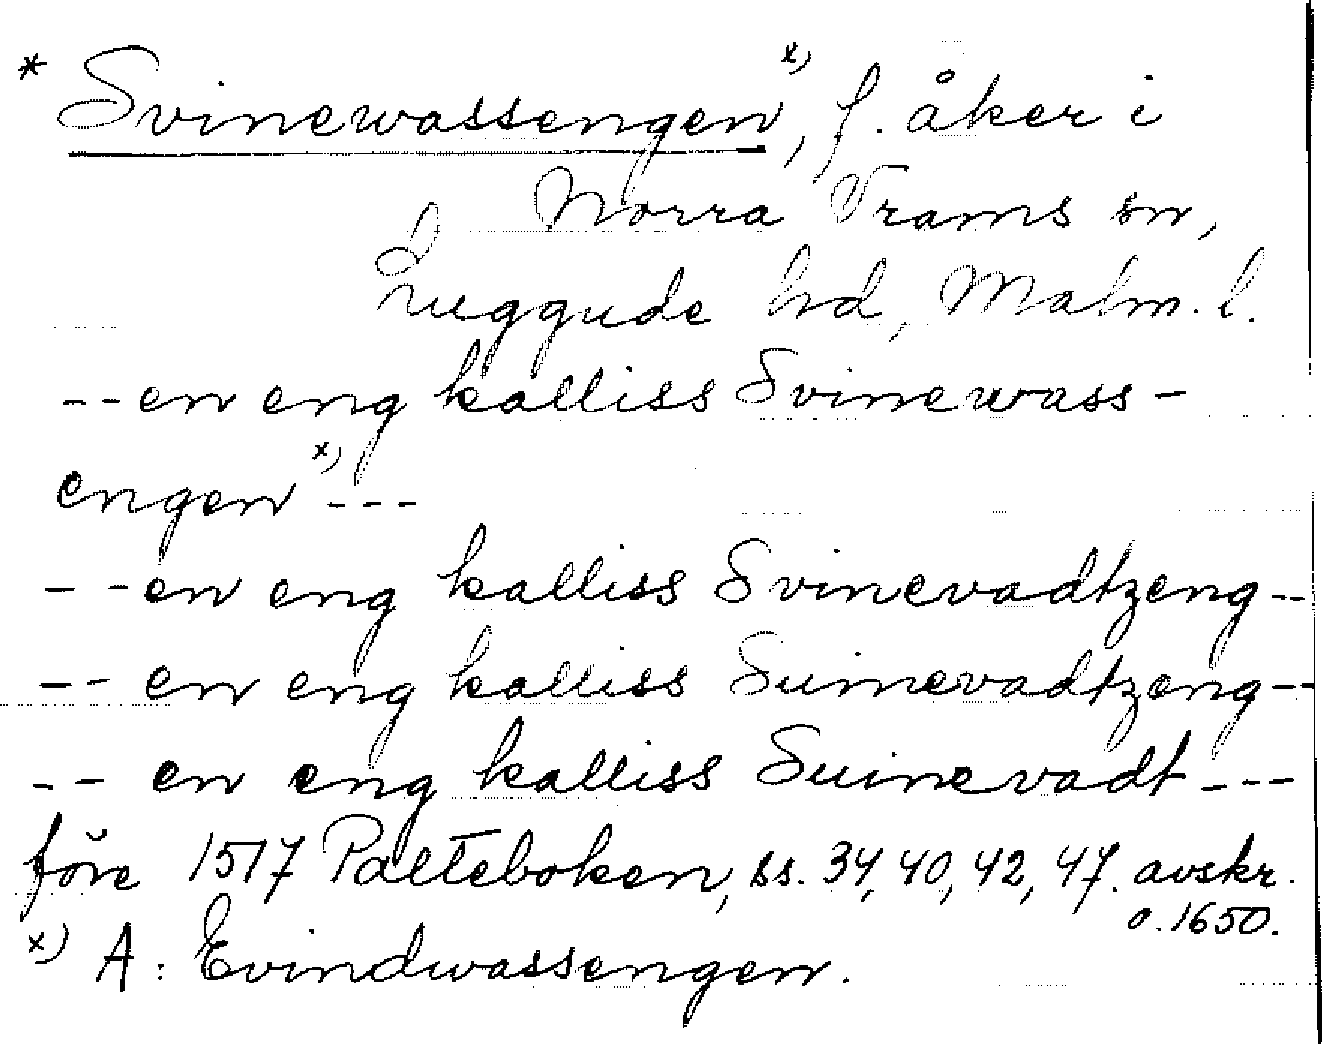 * Svinewassengen x), f. åker i
Norra Vrams sn,
Luggude hd, Malm. l.
-- en eng kalliss Svinewass-
engen x) ---
-- en eng kalliss Svinevadtzeng --
-- en eng kalliss Suinevadtzeng --
-- en eng kalliss Suinevadt ---
före 1517 Palteboken, ss. 34, 40, 42, 47. avskr.
o. 1650.
x) A: Evindwassengen.